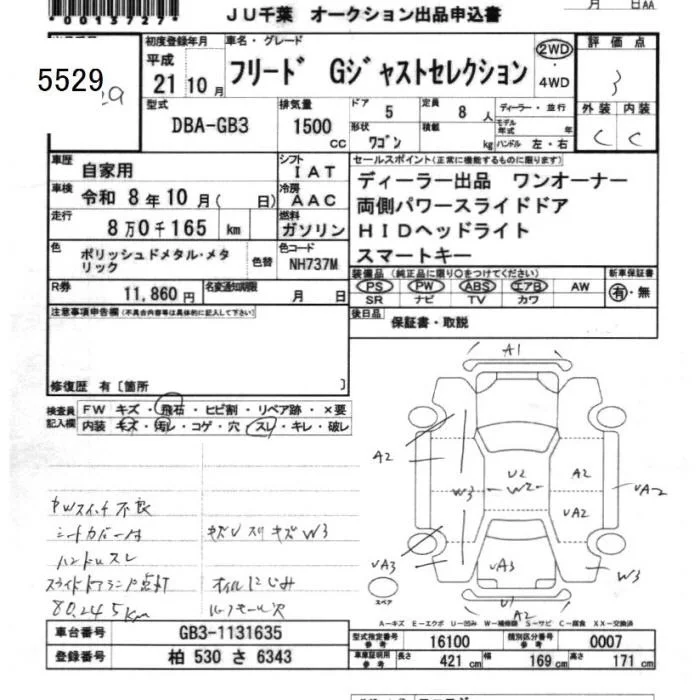 *0013727*
JU千葉 オークション出品申込書
月 日AA
5529
初度登録年月
平成
21 10月
車名・グレード
フリード Gジャストセレクション
2WD
・
4WD
評価点
3
外装 内装
C C
型式
DBA-GB3
排気量
1500
cc
ドア 5
定員 8人
形状 ワゴン
積載 kg
ディーラー・並行
モデル年式 年
ハンドル 左・右
車歴 自家用
シフト IAT
車検 令和 8年10月( 日)
冷房 AAC
走行 8万0千165 km
燃料 ガソリン
色 ポリッシュドメタル・メタリック
色替
色コード NH737M
R券 11,860円
名変通知期限 月 日
セールスポイント(正常に機能するものに限ります)
ディーラー出品 ワンオーナー
両側パワースライドドア
HIDヘッドライト
スマートキー
装備品 (純正品に限り○をつけてください)
PS PW ABS エアB AW
SR ナビ TV カワ
新車保証書
有・無
後日品 保証書・取説
注意事項申告欄(不具合内容等は具体的に記入して下さい)
修復歴 有〔箇所 〕
検査員記入欄
FW キズ・飛石・ヒビ割・リペア跡・×要
内装 キズ・汚レ・コゲ・穴・スレ・キレ・破レ
PWスイッチ不良
シートカバー付
ハンドルスレ
スライドドアランプ点灯
80,245km
キズU スリキズ W3
オイルにじみ
ルーフモール穴
A1
A2
U2
W2
W3
A2
UA2
UA2
UA3
UA3
W3
U1
A2
スペア
A-キズ E-エクボ U-凹み W-補修跡 S-サビ C-腐食 XX-交換済
車台番号 GB3-1131635
登録番号 柏 530 さ 6343
型式指定番号 参考 16100
類別区分番号 参考 0007
車庫証明用 参考 長さ 421cm 幅 169cm 高さ 171cm